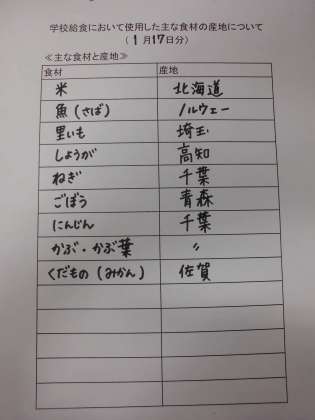 学校給食において使用した主な食材の産地について
（1月17日分）
≪主な食材と産地≫
食材 産地
米 北海道
魚（さば） ノルウェー
里いも 埼玉
しょうが 高知
ねぎ 千葉
ごぼう 青森
にんじん 千葉
かぶ・かぶ葉 〃
くだもの（みかん） 佐賀